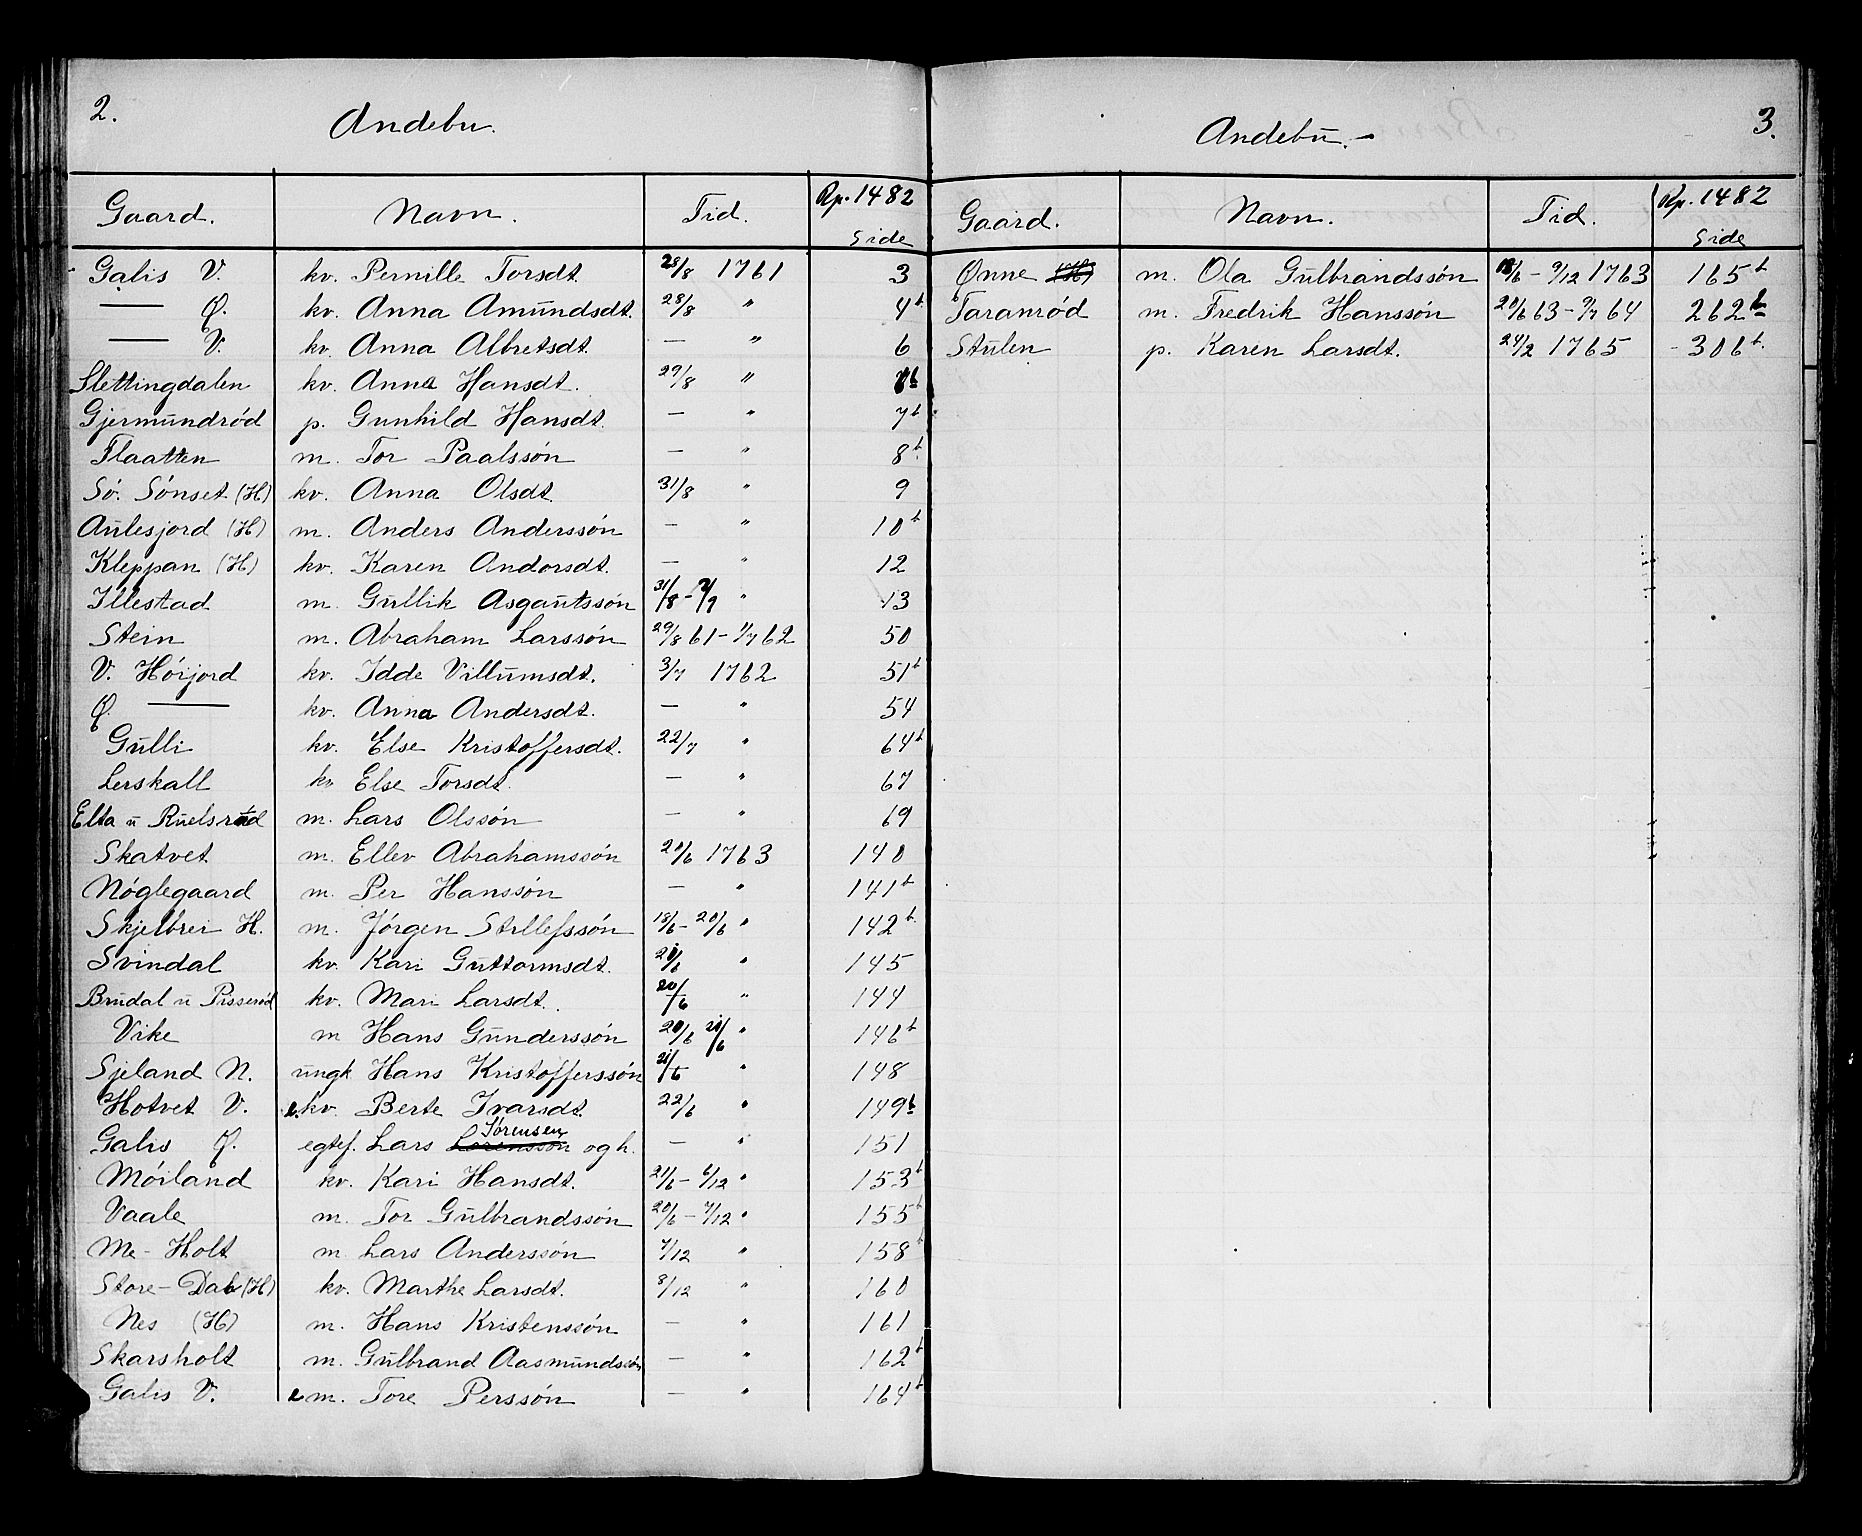 2.
Andebu.
Gaard. Navn. Tid. Rp. 1482 Side
Galis V. kv. Pernille Torsdt. 28/8 1761 3
— Ø. kv. Anna Amundsdt. 28/8 " 4b
— V. kv. Anna Albretsdt. — " 6
Slettingdalen kv. Anna Hansdt. 29/8 "
Gjermundrød p. Gunhild Hansdt. — " 7b
Flaatten m. Tor Paalssøn — " 8b
Sø. Sønset (H) kv. Anna Olsdt. 31/8 " 9
Aulesjord (H) m. Anders Anderssøn — " 10b
Kleppan (H) kv. Karen Andorsdt. — " 12
Illestad m. Gullik Asgautssøn 31/8 - 2/9 " 13
Stein m. Abraham Larssøn 29/8 61 - 1/7 62 50
V. Høijord kv. Idde Villumsdt. 3/7 1762 51b
Ø. — kv. Anna Andersdt. — " 54
Gulli kv. Else Kristoffersdt. 22/7 " 64b
Lerskall kv. Else Torsdt. — " 67
Elta u Ruelsrød m. Lars Olssøn — " 69
Skatvet m. Ellev Abrahamssøn 20/6 1763 140
Nøglegaard m. Per Hanssøn — " 141b
Skjelbrei H. m. Jørgen Stillefssøn 18/6 - 20/6 " 142b
Svindal kv. Kari Guttormsdt. 20/6 " 145
Brudal u Pisserød kv. Mari Larsdt. 20/6 " 144
Vike m Hans Gunderssøn 20/6 21/6 " 146b
Sjeland N. ungk Hans Kristofferssøn 21/6 " 148
Hotvet V. e.kv. Berte Ivarsdt. 22/6 " 149b
Galis Ø. egtef. Lars Lorensson Sørensen og h. — " 151
Møiland kv. Kari Hansdt. 21/6 - 6/12 " 153b
Vaale m. Tor Gulbrandssøn 20/6 - 7/12 " 155b
Me- Holt m. Lars Anderssøn 7/12 " 158b
Store- Dal (H) kv. Marthe Larsdt. 8/12 " 160
Nes (H) m. Hans Kristenssøn — " 161
Skarsholt m. Gulbrand Aasmundssøn — " 162b
Galis V. e m. Tore Perssøn — " 164b
3.
Andebu.-
Gaard. Navn. Tid. Rp. 1482 Side
Ønne (H) m. Ola Gulbrandssøn 18/6 - 9/12 1763 165b
Taranrød m. Fredrik Hanssøn 20/6 63 - 9/7 64 262b
Stulen p. Karen Larsdt. 24/2 1765 - 306b.